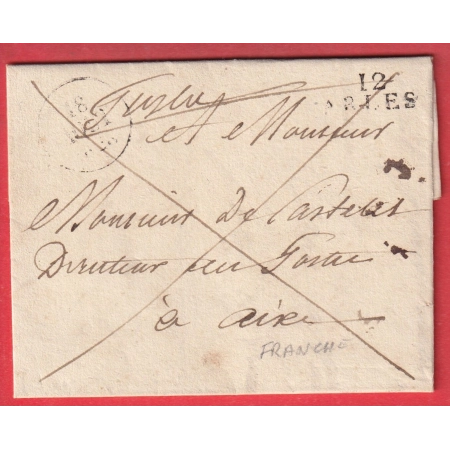 12
ARLES
A Monsieur
Monsieur De Castelet
Directeur des Postes
à aix
FRANCHE